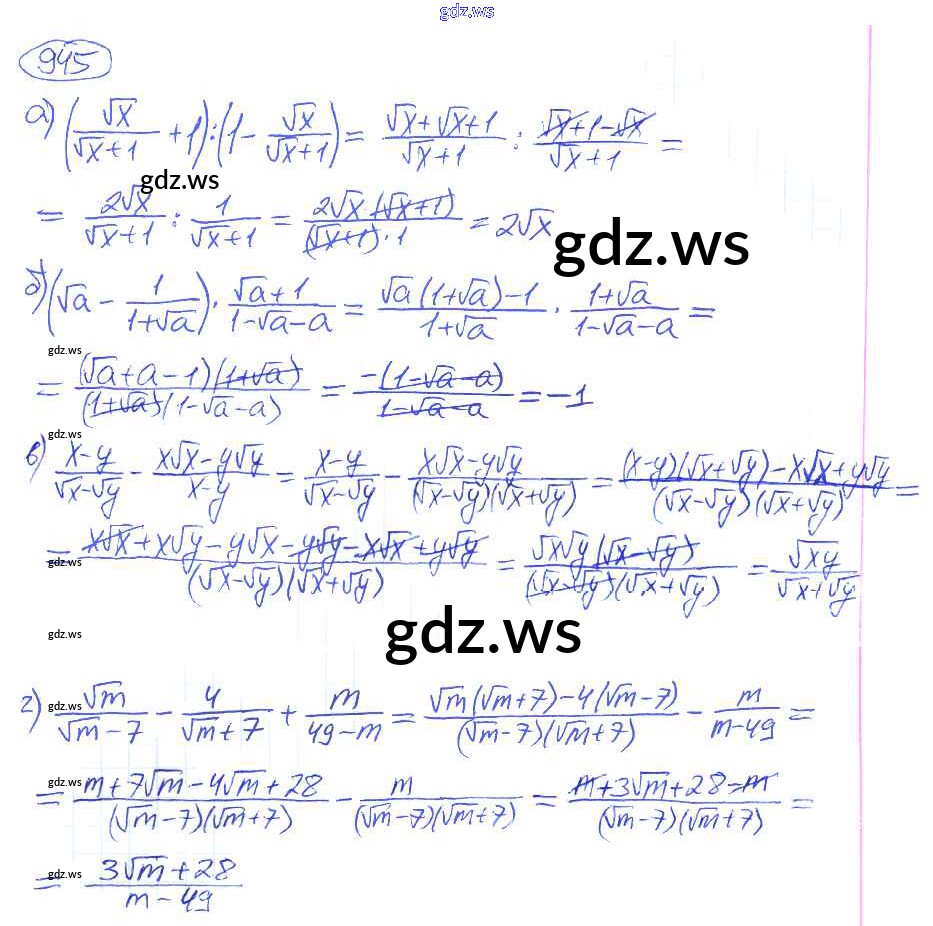 gdz.ws
945
а) (√x/(√x+1) + 1) : (1 - √x/(√x+1)) = (√x+√x+1)/(√x+1) : (√x+1-√x)/(√x+1) =
gdz.ws
= 2√x/(√x+1) : 1/(√x+1) = 2√x·(√x+1)/((√x+1)·1) = 2√x
gdz.ws
б) (√a - 1/(1+√a)) · (√a+1)/(1-√a-a) = (√a(1+√a)-1)/(1+√a) · (1+√a)/(1-√a-a) =
gdz.ws
= (√a+a-1)(1+√a)/((1+√a)(1-√a-a)) = -(1-√a-a)/(1-√a-a) = -1
gdz.ws
в) (x-y)/(√x-√y) - (x√x-y√y)/(x-y) = (x-y)/(√x-√y) - (x√x-y√y)/((√x-√y)(√x+√y)) = ((x-y)(√x+√y)-x√x+y√y)/((√x-√y)(√x+√y)) =
= (x√x+x√y-y√x-y√y-x√x+y√y)/((√x-√y)(√x+√y)) = √x√y(√x-√y)/((√x-√y)(√x+√y)) = √xy/(√x+√y)
gdz.ws
gdz.ws
gdz.ws
г) √m/(√m-7) - 4/(√m+7) + m/(49-m) = (√m(√m+7)-4(√m-7))/((√m-7)(√m+7)) - m/(m-49) =
gdz.ws
gdz.ws
= (m+7√m-4√m+28)/((√m-7)(√m+7)) - m/((√m-7)(√m+7)) = (m+3√m+28-m)/((√m-7)(√m+7)) =
gdz.ws
= (3√m+28)/(m-49)